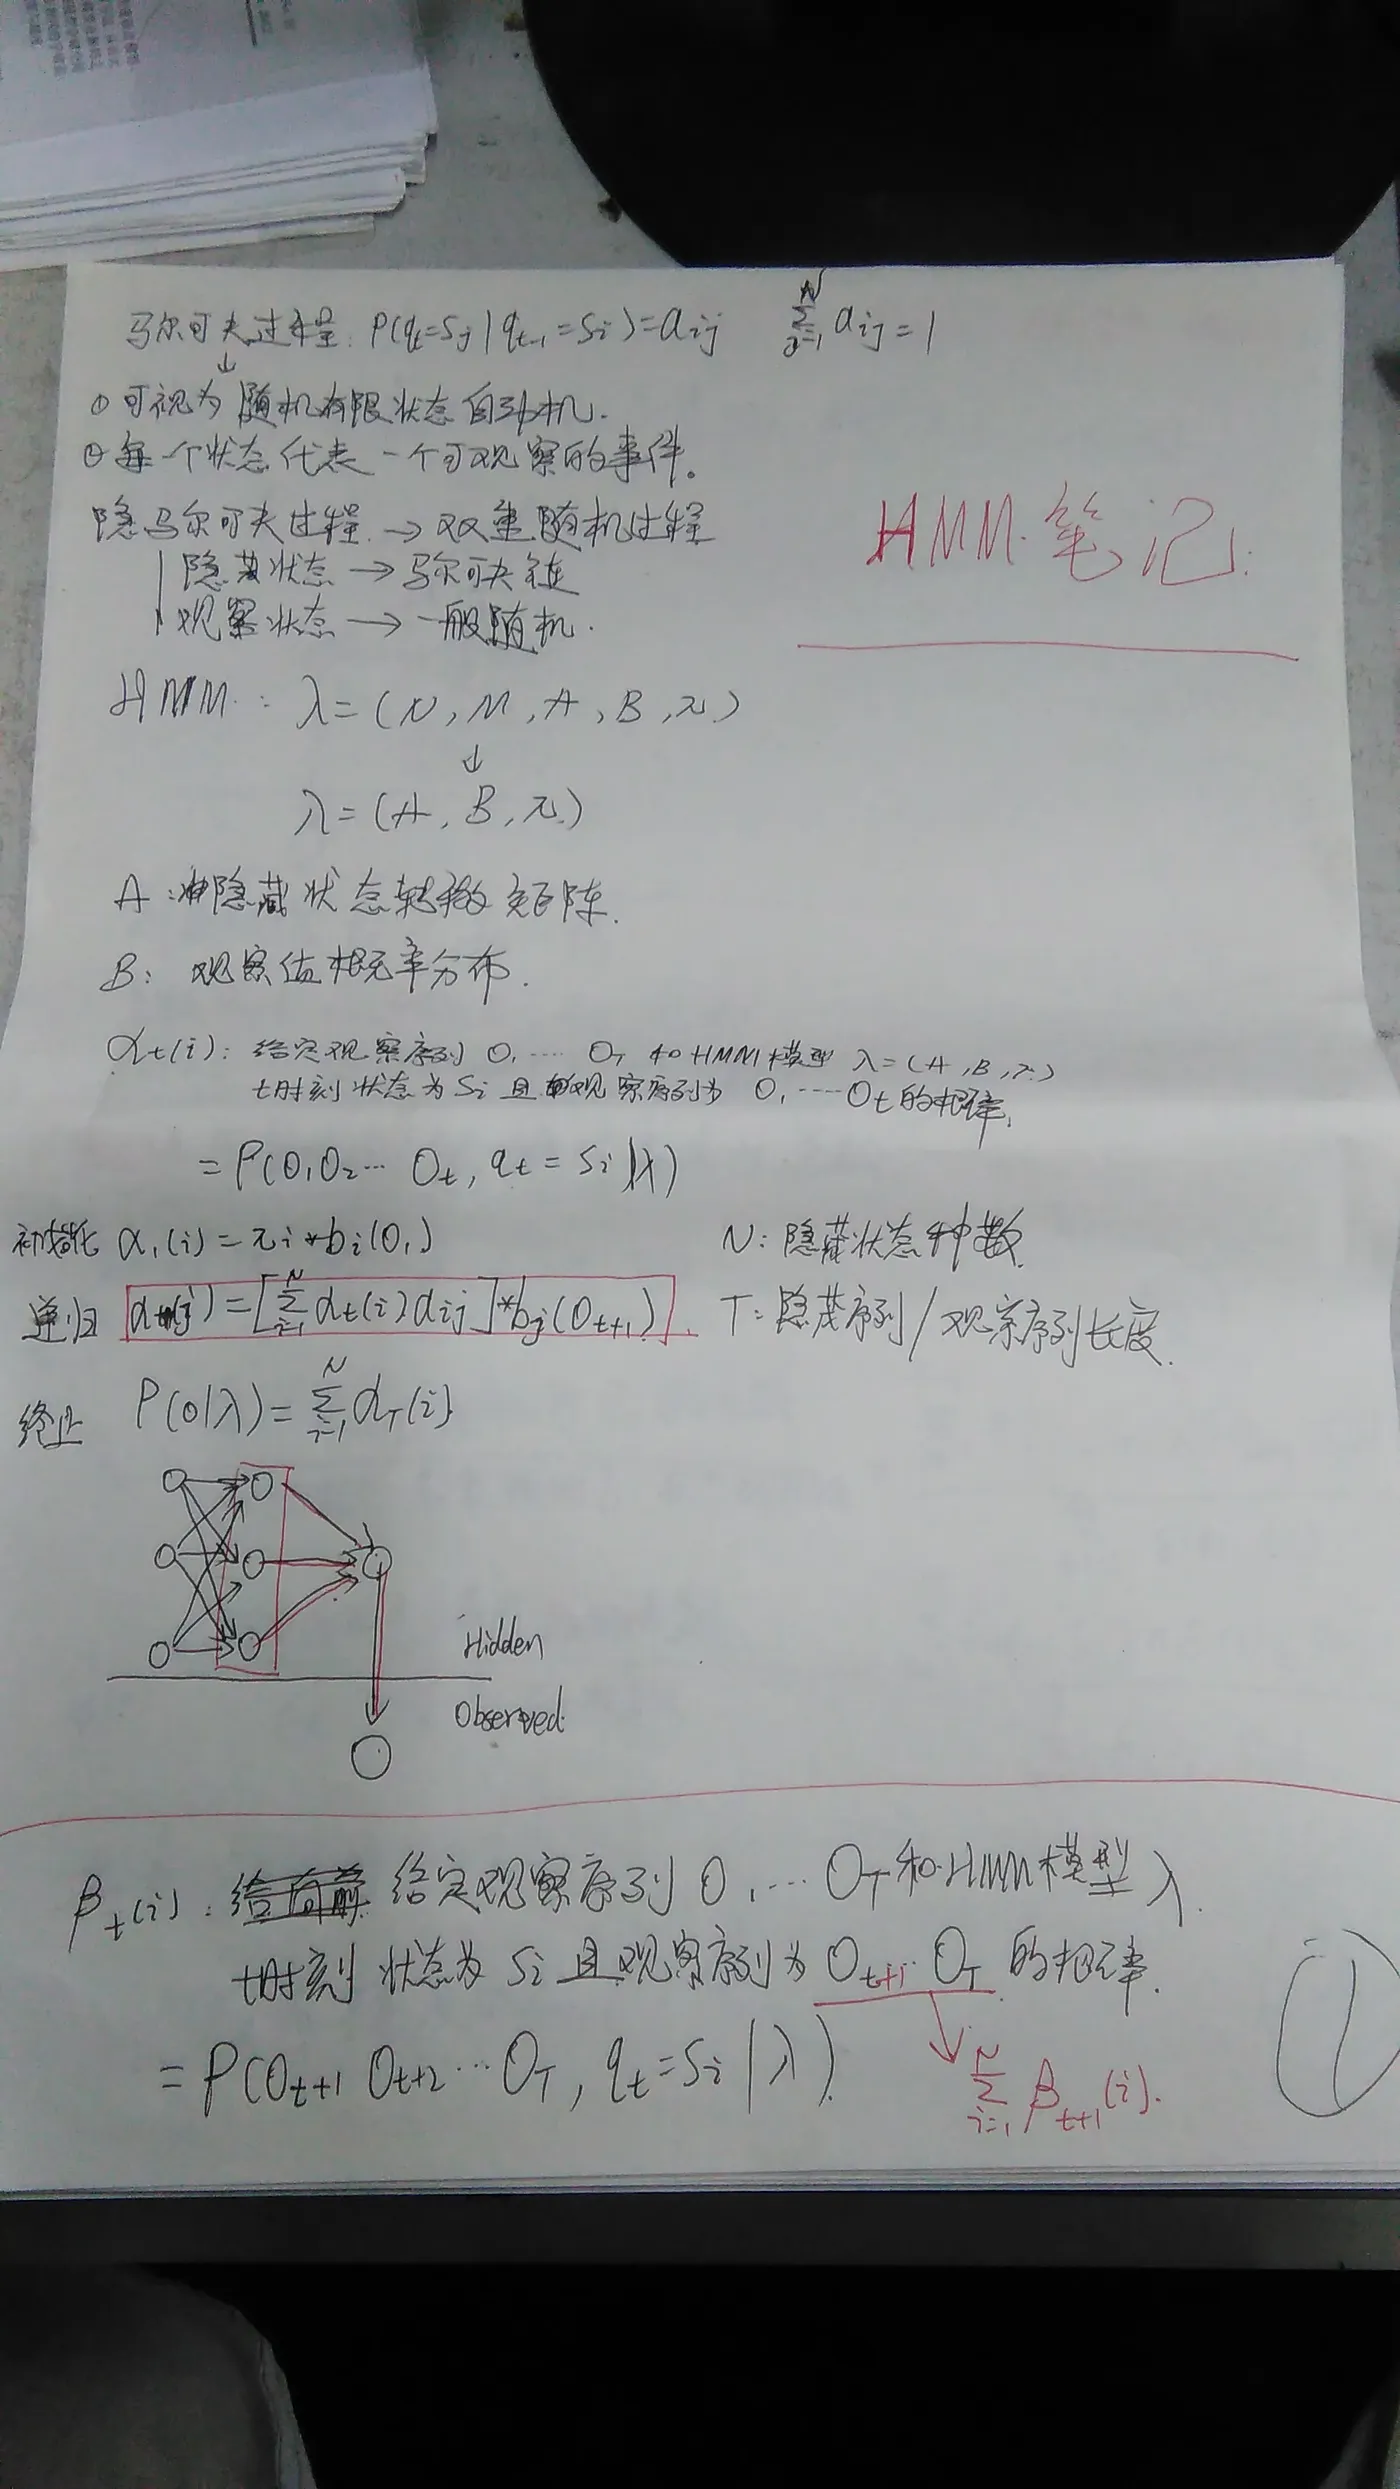 马尔可夫过程: P(qt=Sj|qt-1=Si)=aij  ∑_{j=1}^{N} aij=1
↓
① 可视为随机有限状态自动机.
② 每一个状态代表一个可观察的事件。
HMM 笔记.
隐马尔可夫过程 → 双重随机过程
隐藏状态 → 马尔可夫链
观察状态 → 一般随机.
HMM: λ=(N, M, A, B, π)
↓
λ=(A, B, π)
A: 隐藏状态转移矩阵.
B: 观察值概率分布.
αt(i): 给定观察序列 O1 ... OT 和HMM模型 λ=(A, B, π)
t时刻状态为Si 且观察序列为 O1 ... Ot 的概率.
=P(O1O2... Ot, qt=Si|λ)
初始化 α1(i)=πi*bi(O1)
N: 隐藏状态种数.
递归 αt+1(j)=[∑_{i=1}^{N} αt(i)aij]*bj(Ot+1).
T: 隐藏序列/观察序列长度.
终止 P(O|λ)=∑_{i=1}^{N} αT(i)
Hidden
Observed.
βt(i): 给定观察序列O1... OT和HMM模型 λ.
t时刻状态为Si 且观察序列为 Ot+1 OT 的概率.
=P(Ot+1 Ot+2 ... OT, qt=Si|λ).
∑_{i=1}^{N} βt+1(i).
①